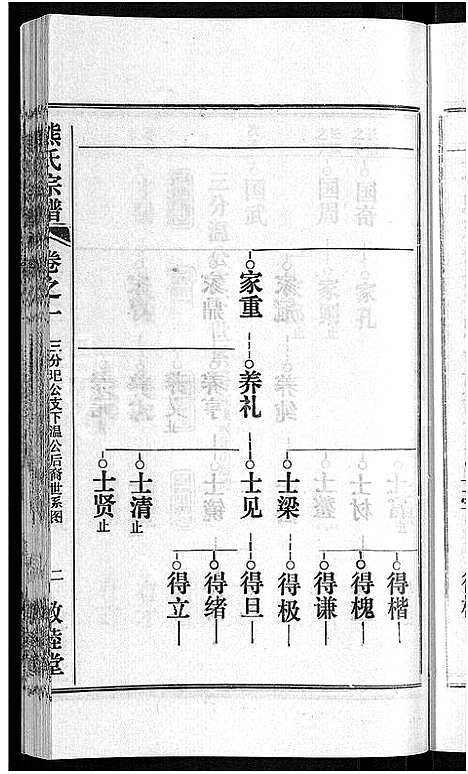 熊氏宗谱
卷之一
三分玘公支下温公后裔世系图
二
敦睦堂
家重
养礼
士梁
士见
士清止
士贤止
得楷
得槐
得谦
得极
得旦
得绪
得立